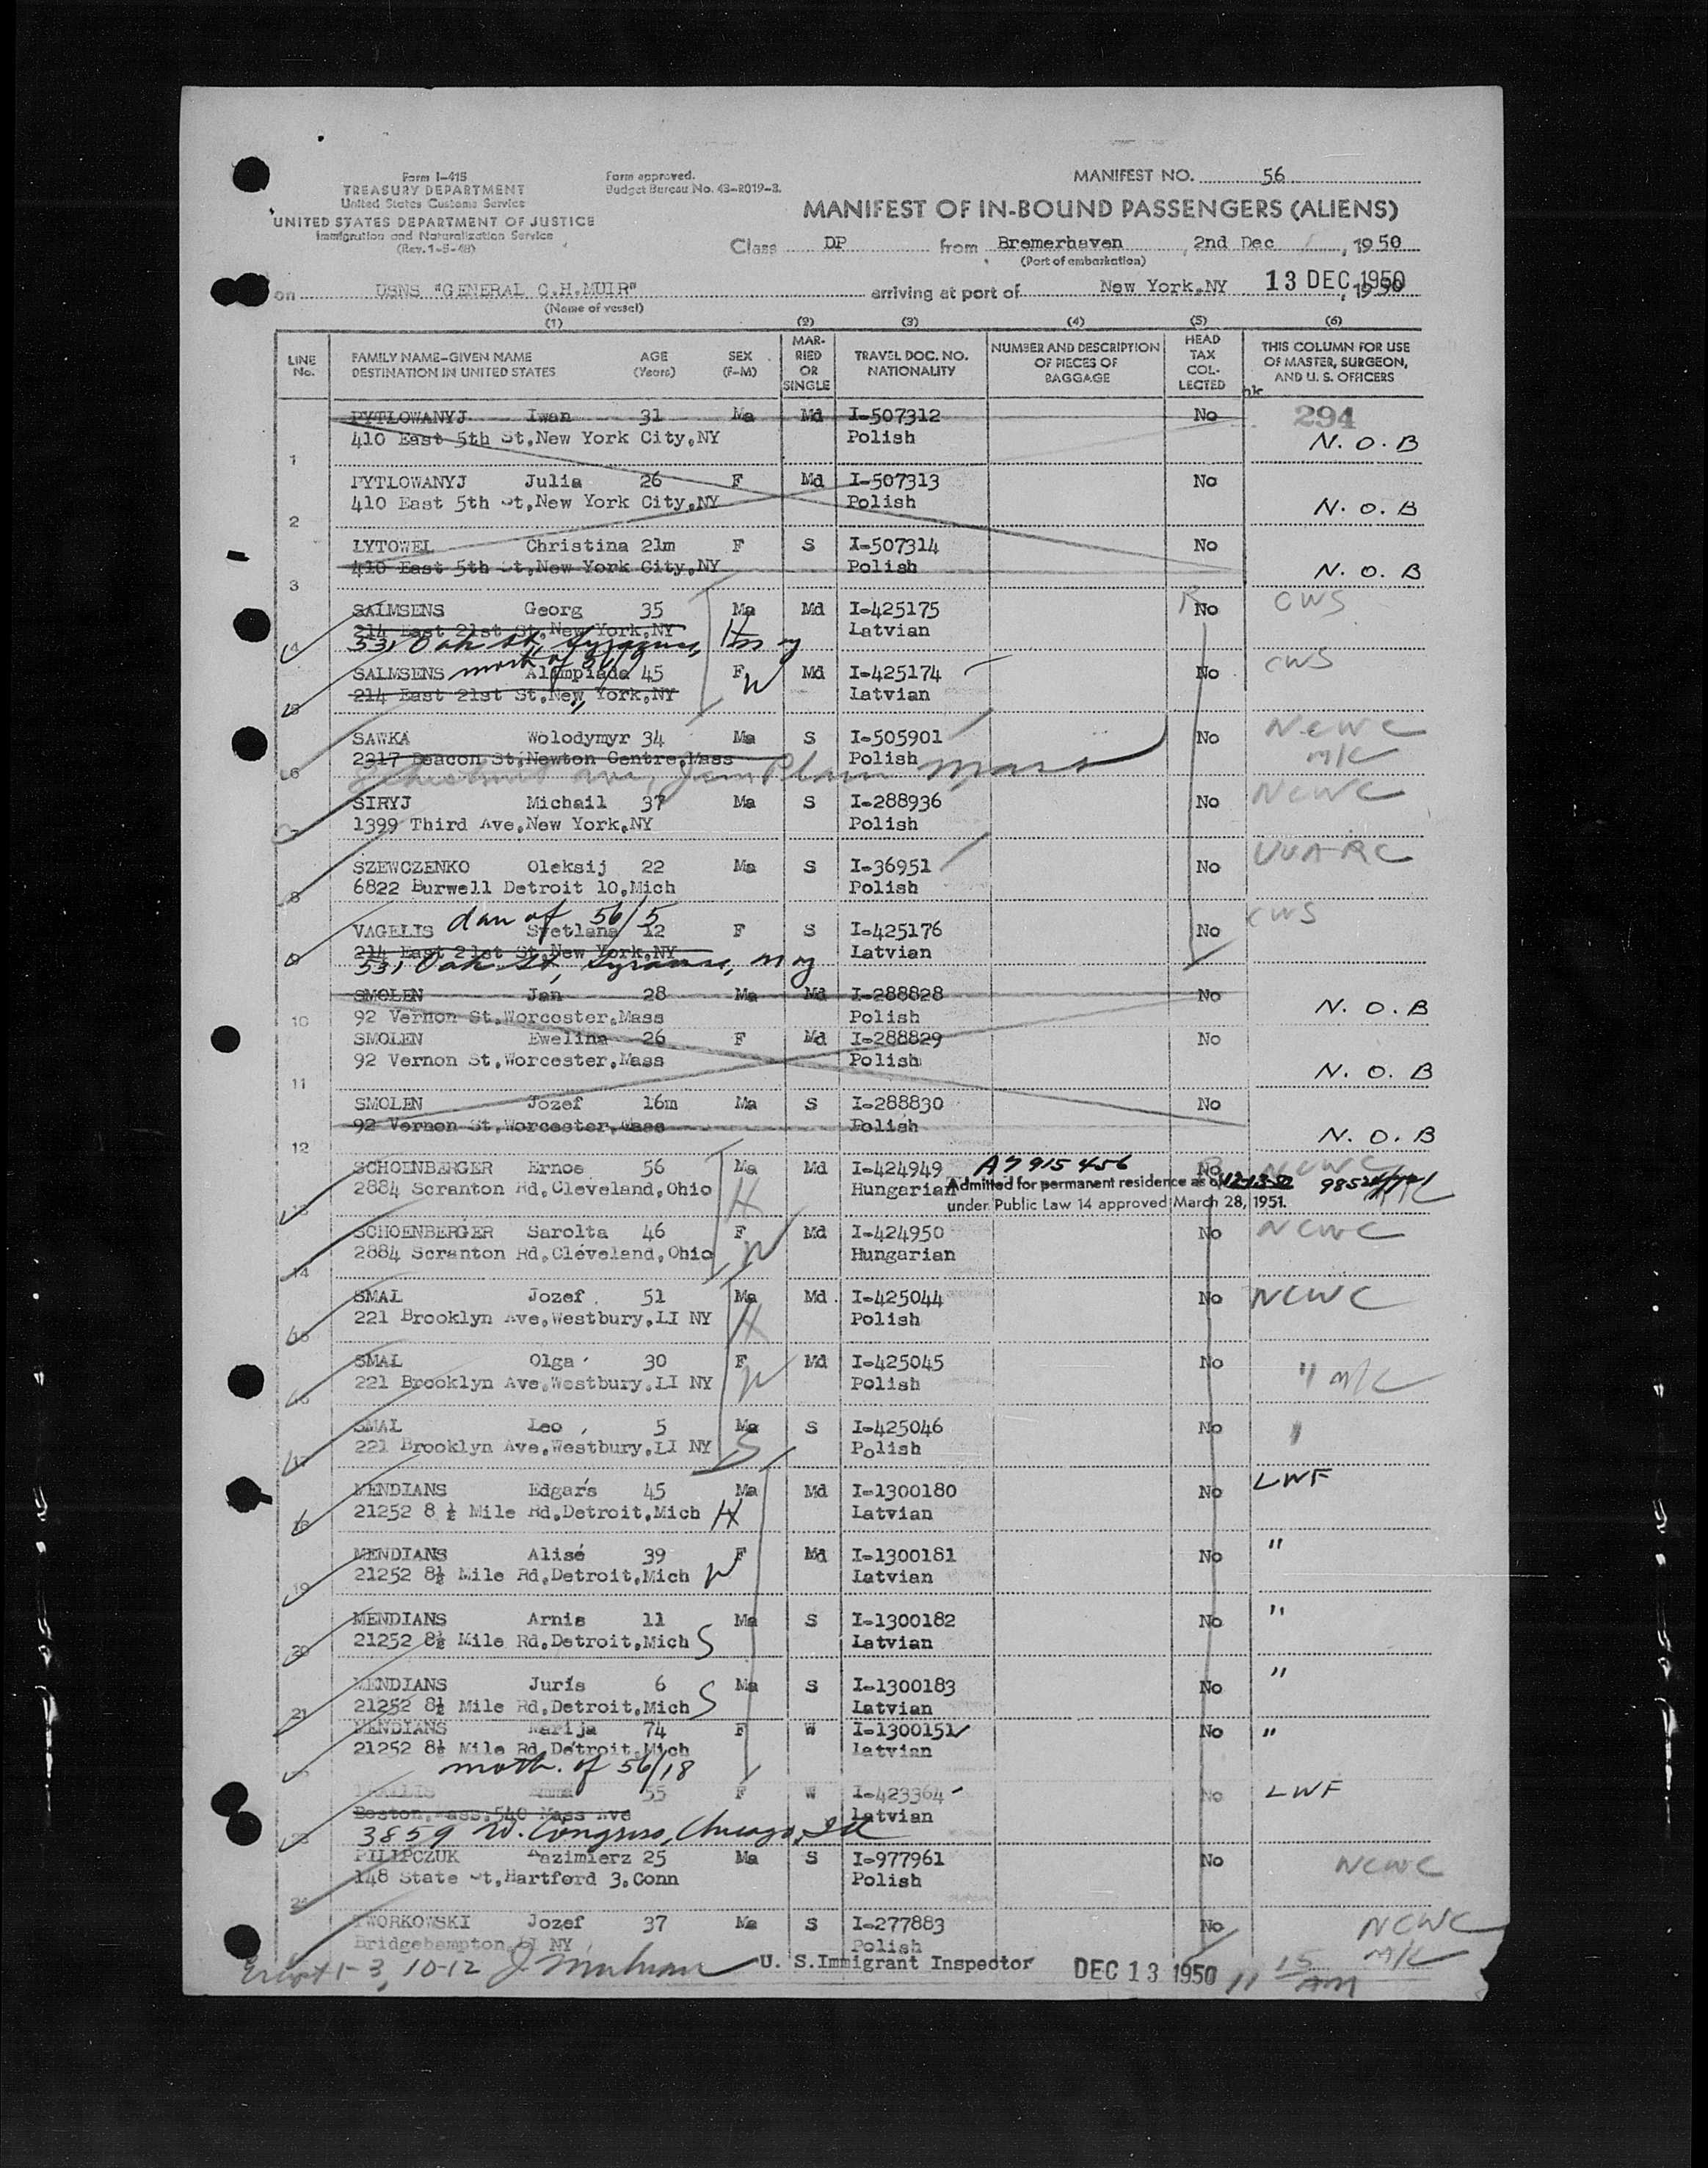 Form I-415
TREASURY DEPARTMENT
United States Customs Service
UNITED STATES DEPARTMENT OF JUSTICE
Immigration and Naturalization Service
(Rev. 1-5-48)
Form approved.
Budget Bureau No. 43-R019-3.
MANIFEST NO. 56
MANIFEST OF IN-BOUND PASSENGERS (ALIENS)
Class DP from Bremerhaven, 2nd Dec, 1950
(Port of embarkation)
on USNS "GENERAL C.H.MUIR" arriving at port of New York.NY 13 DEC 1950, 1950
(Name of vessel)
(1) (2) (3) (4) (5) (6)
LINE No. FAMILY NAME-GIVEN NAME DESTINATION IN UNITED STATES AGE (Years) SEX (F-M) MARRIED OR SINGLE TRAVEL DOC. NO. NATIONALITY NUMBER AND DESCRIPTION OF PIECES OF BAGGAGE HEAD TAX COLLECTED THIS COLUMN FOR USE OF MASTER, SURGEON, AND U. S. OFFICERS
hk
PYTLOWANYJ Iwan 31 Ma Md I-507312 No 294
410 East 5th St,New York City,NY Polish N.O.B
1
PYTLOWANYJ Julia 26 F Md I-507313 No
410 East 5th St,New York City,NY Polish N.O.B
2
LYTOWEL Christina 21m F S I-507314 No
410 East 5th St,New York City,NY Polish N.O.B
3
SALMSENS Georg 35 Ma Md I-425175 No CWS
214 East 21st St,New York,NY H Latvian
4 531 Oak St, Syracuse, NY
moth of 56/9
SALMSENS Alympiada 45 F Md I-425174 No CWS
214 East 21st St,New York,NY W Latvian
5
SAWKA Wolodymyr 34 Ma S I-505901 No NCWC
2317 Beacon St,Newton Centre,Mass Polish M/C
6 Chestnut Ave, Jam Plain Mass
SIRYJ Michail 37 Ma S I-288936 No NCWC
1399 Third Ave,New York,NY Polish
7
SZEWCZENKO Oleksij 22 Ma S I-36951 No UUARC
6822 Burwell Detroit 10,Mich Polish
8
dau of 56/5
VAGELIS Svetlana 12 F S I-425176 No CWS
214 East 21st St,New York,NY Latvian
9 531 Oak St, Syracuse, NY
SMOLEN Jan 28 Ma Md I-288828 No
10 92 Vernon St,Worcester,Mass Polish N.O.B
SMOLEN Ewelina 26 F Md I-288829 No
92 Vernon St,Worcester,Mass Polish N.O.B
11
SMOLEN Jozef 16m Ma S I-288830 No
92 Vernon St,Worcester,Mass Polish N.O.B
12
SCHOENBERGER Ernoe 56 Ma Md I-424949 A7 915 456 No NCWC
2884 Scranton Rd,Cleveland,Ohio H Hungarian Admitted for permanent residence as of 12-13-50
13 under Public Law 14 approved March 28, 1951.
SCHOENBERGER Sarolta 46 F Md I-424950 No NCWC
2884 Scranton Rd,Cleveland,Ohio W Hungarian
14
SMAL Jozef 51 Ma Md I-425044 No NCWC
221 Brooklyn Ave,Westbury,LI NY H Polish
15
SMAL Olga 30 F Md I-425045 No " M/C
221 Brooklyn Ave,Westbury,LI NY W Polish
16
SMAL Leo 5 Ma S I-425046 No "
221 Brooklyn Ave,Westbury,LI NY S Polish
17
MENDIANS Edgars 45 Ma Md I-1300180 No LWF
21252 8 ½ Mile Rd,Detroit,Mich H Latvian
18
MENDIANS Alise 39 F Md I-1300181 No "
21252 8½ Mile Rd,Detroit,Mich W Latvian
19
MENDIANS Arnis 11 Ma S I-1300182 No "
21252 8½ Mile Rd,Detroit,Mich S Latvian
20
MENDIANS Juris 6 Ma S I-1300183 No "
21 21252 8½ Mile Rd,Detroit,Mich S Latvian
MENDIANS Marija 74 F W I-1300151 No "
21252 8½ Mile Rd,Detroit,Mich Latvian
moth. of 56/18
55 F W I-423364 No LWF
Boston,Mass,540 Mass Ave Latvian
23 3859 W. Congress, Chicago, Ill
PILIPCZUK Kazimierz 25 Ma S I-977961 No NCWC
148 State St,Hartford 3,Conn Polish
24
TWORKOWSKI Jozef 37 Ma S I-277883 No NCWC
Bridgehampton,LI NY Polish M/C
Except 1-3, 10-12 U. S.Immigrant Inspector DEC 13 1950 11 15 AM